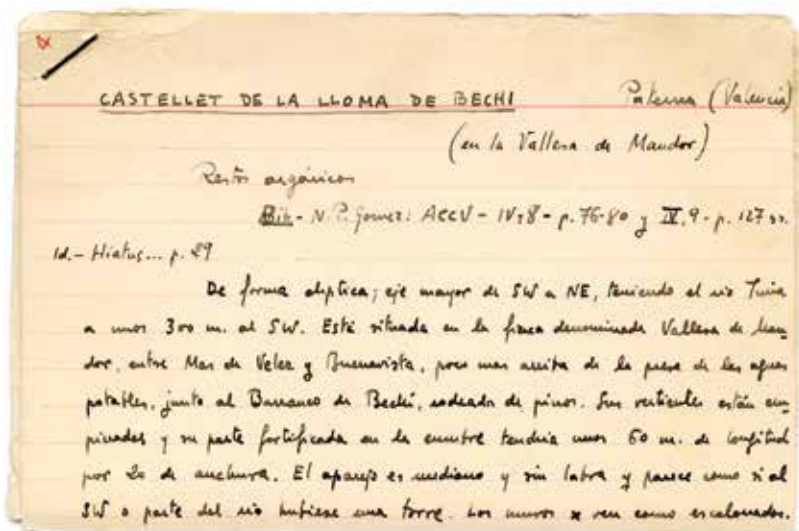 CASTELLET DE LA LLOMA DE BECHI Paterna (Valencia)
(en la Vallesa de Mandor)
Restos argáricos
Bib - N. P. Gomez: ACCV - IV, 8 - p. 76-80 y IV, 9 - p. 127 ss.
Id. - Hiatus... p. 29
De forma eliptica; eje mayor de SW a NE, teniendo el rio Turia
a unos 300 m. al SW. Está situada en la finca denominada Vallesa de Man-
dor, entre Mas de Velez y Buenavista, poco mas arriba de la presa de las aguas
potables, junto al Barranco de Bechí, rodeada de pinos. Sus vertientes están em
pinadas y su parte fortificada en la cumbre tendria unos 60 m. de longitud
por 20 de anchura. El aparejo es mediano y sin labra y parece como si al
SW o parte del rio hubiese una torre. Los muros se ven como escalonados.